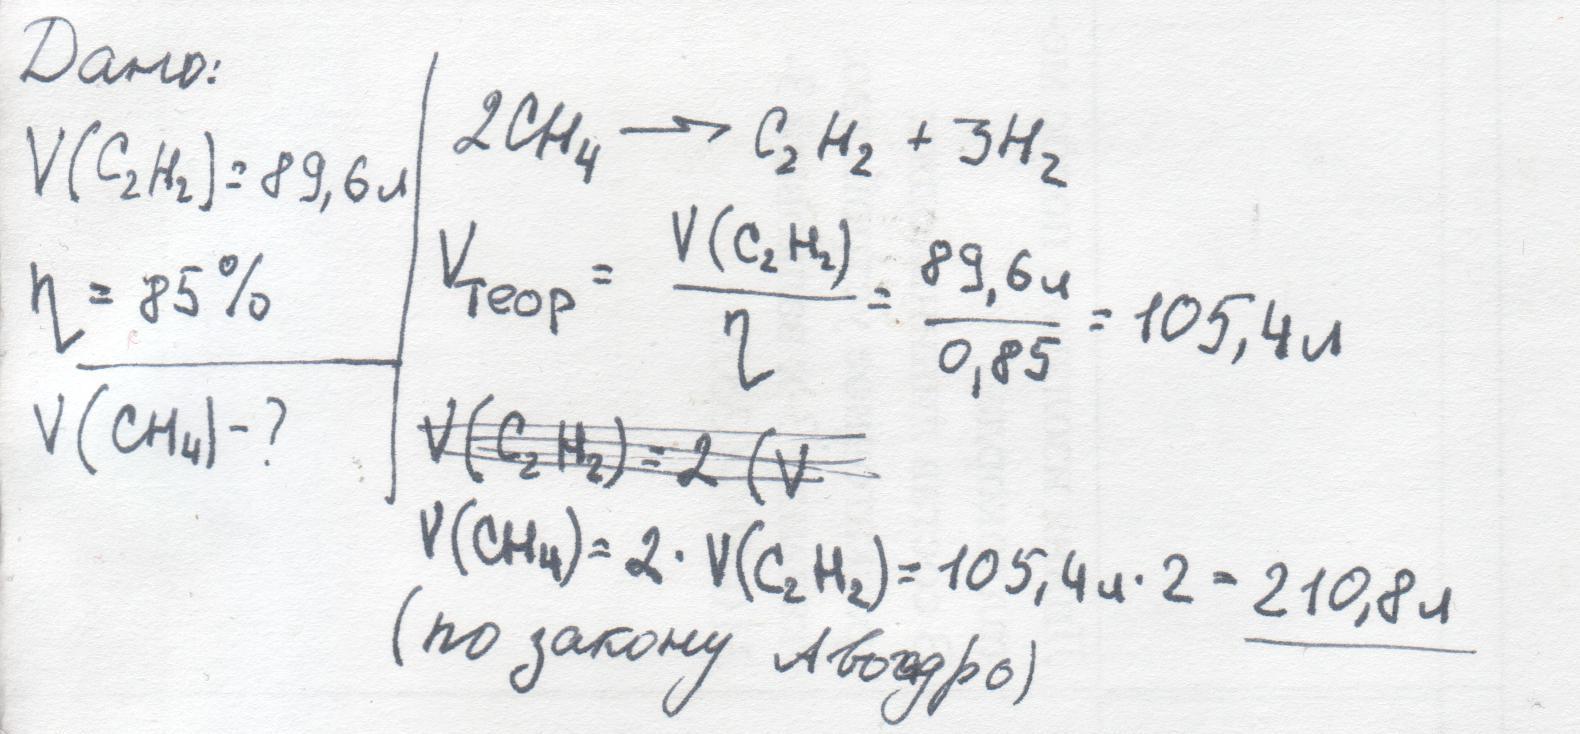 Дано:
V(C₂H₂)=89,6л
η = 85%
V(CH₄)-?
2CH₄ → C₂H₂ + 3H₂
Vтеор = V(C₂H₂)/η = 89,6л/0,85 = 105,4л
V(C₂H₂)=2(V
V(CH₄)=2·V(C₂H₂)=105,4л·2=210,8л
(по закону Авогадро)